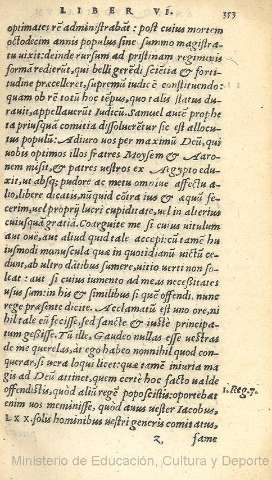 LIBER VI. 353
optimates rẽ administrabãt: post cuius mortem
octodecim annis populus sine summo magistra
tu uixit: deinde rursum ad pristinam regiminis
formã redierũt, qui belli gerẽdi sciẽtia & forti
tudine præcelleret, supremũ iudicẽ constituendo:
quam ob rẽ totũ hoc tẽpus, quo talis status du
rauit, appellauerũt Iudicũ. Samuel autẽ prophe
ta priusquã comitia dissoluerẽtur sic est allocu
tus populũ: Adiuro uos per maximũ Deũ, qui
uobis optimos illos fratres Moysem & Aaro-
nem misit, & patres uestros ex Aegypto edu-
xit, ut absq; pudore ac metu omnine affectu a-
lio, libere dicatis, nũquid cõtra ius & æquũ fe-
cerim, uel proprij lucri cupiditate, uel in alterius
cuiusquã gratiã. Coarguite me si cuius uitulum
aut oue, aut aliud quid tale accepi: cũ tamẽ hu
iusmodi munuscula quæ in quotidianũ uictũ ce-
dunt, ab ultro dãtibus sumere, uitio uerti non so-
leat: aut si cuius iumento ad meas necessitates
usus sum: in his & similibus si quẽ offendi, nunc
rege præsente dicite. Acclamatũ est uno ore, ni
hil tale eũ fecisse, sed sanctè & iustè principa-
tum gessisse. Tũ ille, Gaudeo nullas esse uestras
de me querelas, at ego habeo nonnihil quod con
querar, si uera loqui licet: quæ tamẽ iniuria ma
gis ad Deũ attinet, quem certè hoc facto ualde
offendistis, quòd aliũ regẽ poposcistis: oportebat 1. Reg. 7.
enim uos meminisse, quòd auus uester Iacobus,
LXX. solis hominibus uestri generis comitatus,
z. fame
Ministerio de Educación, Cultura y Deporte